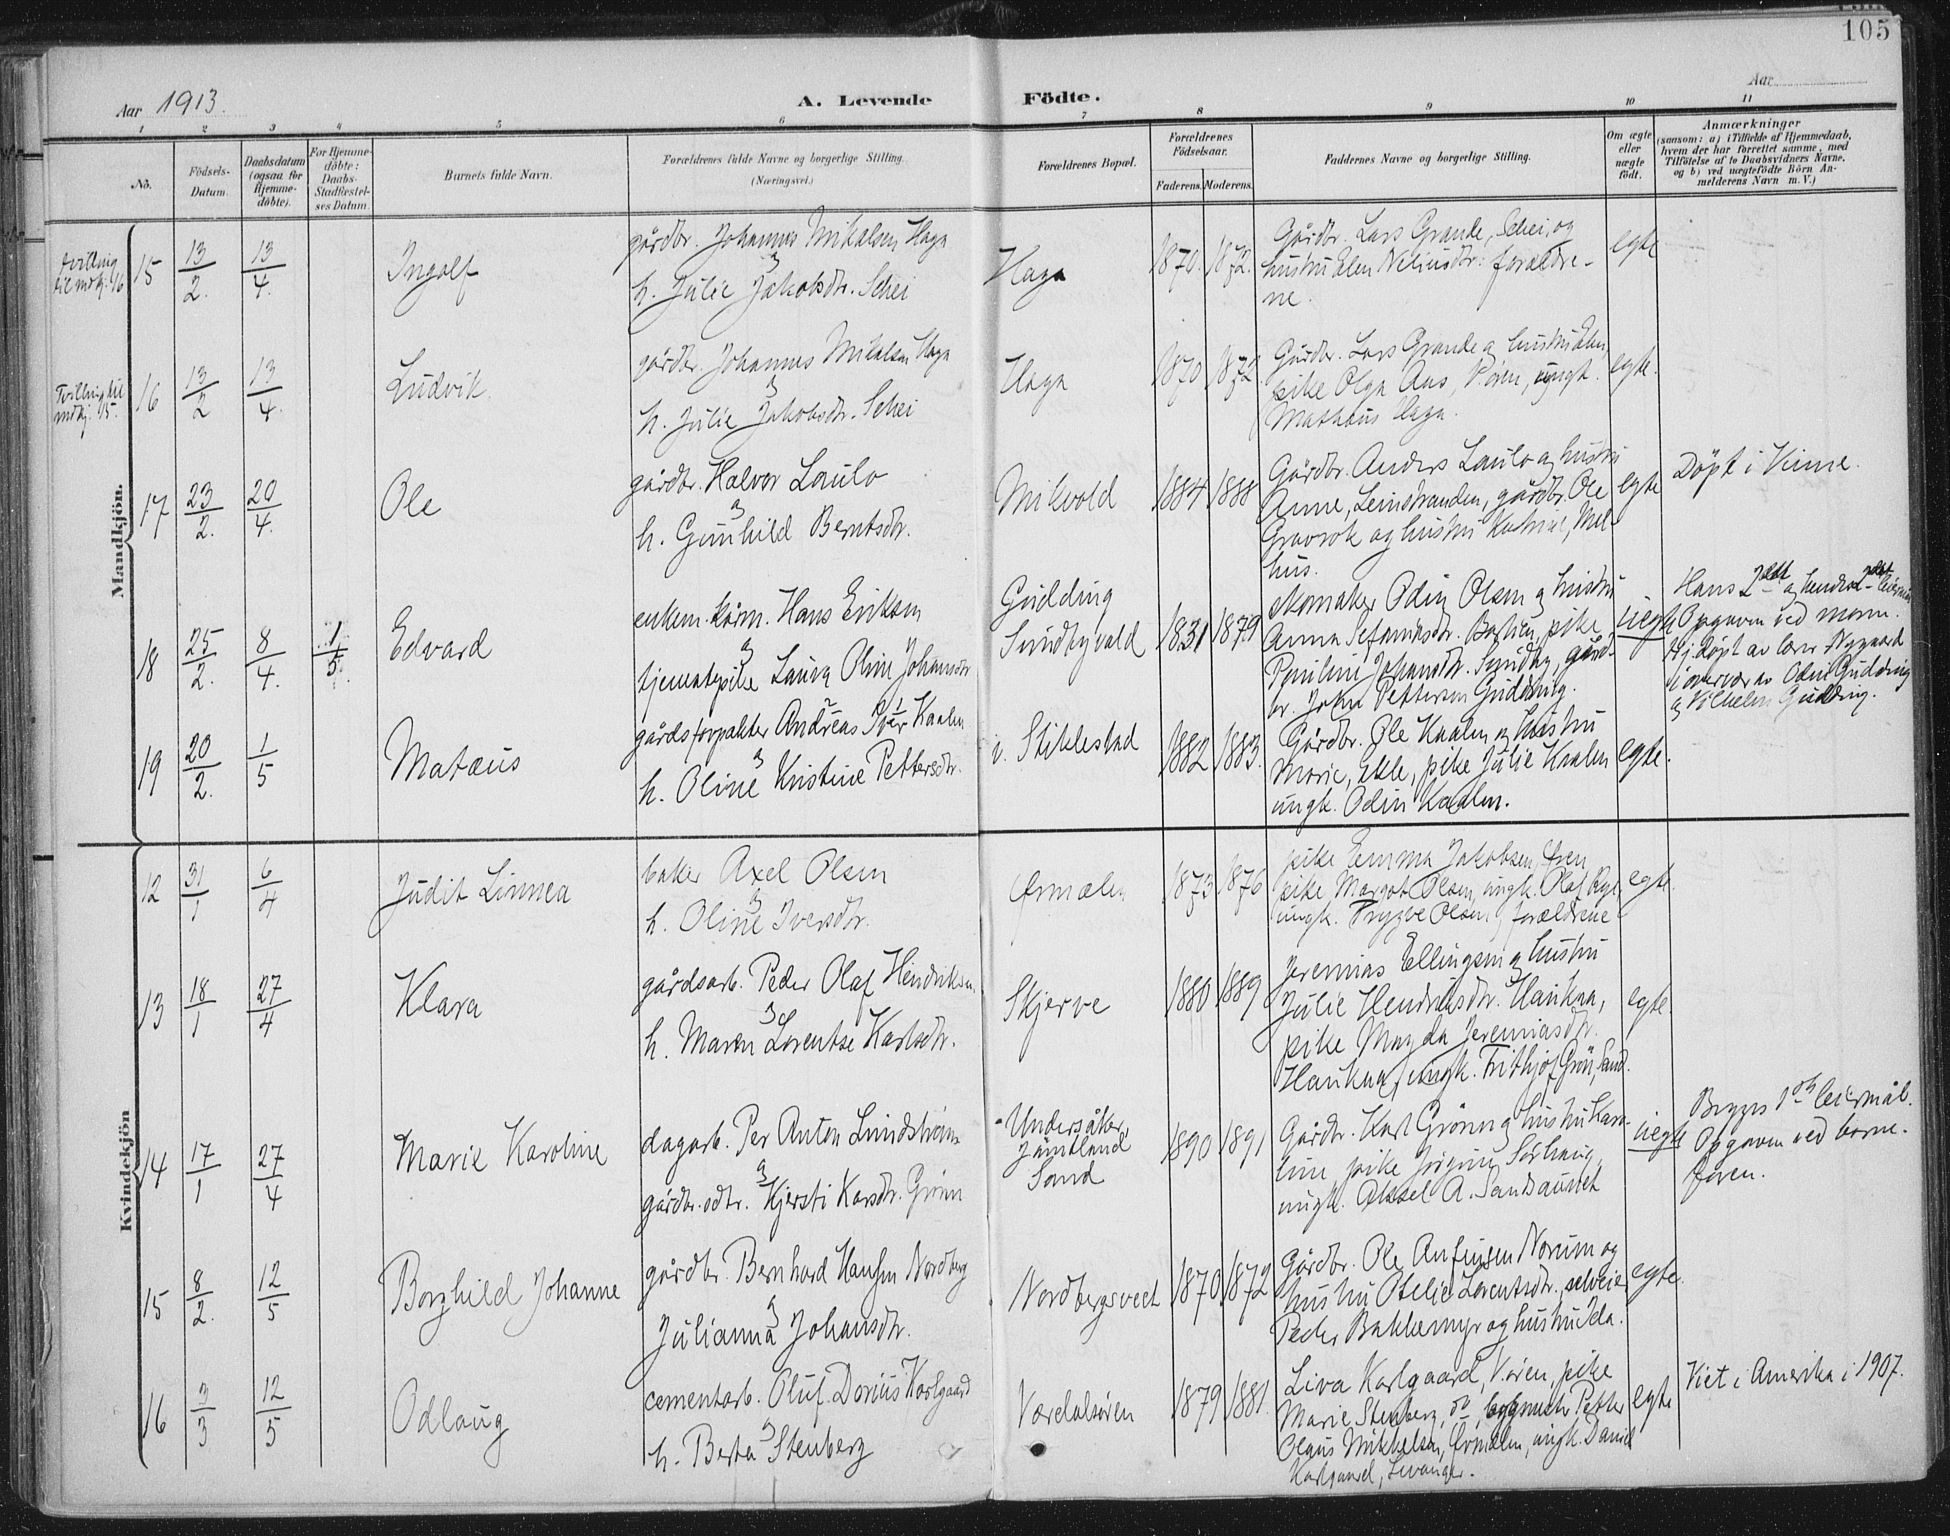 105
Aar 1913.
A. Levende Födte.
Aar
1 2 3 4 5 6 7 8 9 10 11
No.
Födsels-Datum.
Daabsdatum (ogsaa for Hjemme-döbte).
For Hjemme-döbte: Daabs-Stadfæstel-ses Datum.
Barnets fulde Navn.
Forældrenes fulde Navne og borgerlige Stilling.
(Næringsvei.)
Forældrenes Bopæl.
Forældrenes Födselsaar.
Faderens. Moderens.
Faddernes Navne og borgerlige Stilling.
Om ægte eller uægte födt.
Anmærkninger
(saasom: a) i Tilfælde af Hjemmedaab,
hvem der har forrettet samme, med
Tilföielse af to Daabsvidners Navne,
og b) ved uægtefödte Börn An-
melderens Navn m. V.)
Mandkjön.
tvilling
til mdkj. 16
15 13/2. 13/4. Ingolf
gårdbr. Johannes Mikalsen Haga
&
h. Julie Jakobsdtr. Schei
Haga 1870. 1872.
Gårdbr. Lars Grande, Schei, og
hustru Elen Neliusdtr. foræld­re-
ne.
egte
Tvilling til
mdkj. 15.
16 13/2 13/4. Ludvik.
gårdbr. Johannes Mikalsen Haga
&
h. Julie Jakobsdtr. Schei
Haga 1870 1872.
Gårdbr. Lars Grande og hustru Elen,
pike Olga Aas, V.øren, ungk.
Mathæus Haga.
egte.
17 23/2. 20/4. Ole
gårdbr. Halvor Laulo
&
h. Gunhild Berntsdtr.
Mikvold 1884 1888
Gårdbr. Anders Laulo og hustru
Anne, Leinstranden, gårdbr. Ole
Gravrok og hustru Katrine, Mel-
hus.
egte
Döpt i Vinne.
18 25/2. 8/4. 1/5. Edvard
enkem. kårm. Hans Eriksen
&
tjenestepike Laura Oline Johansdtr
Gudding
Sundbyvald 1831 1879
Skomaker Odin Olsen og hustru
Anna Sefaniasdtr. pike
Pauline Johansdtr. Sundby, gård-
br. John Pettersen Gudding.
uegte
Hans 2det og hendes 2det leiermål
Opgaven ved moren.
Hj.döpt av lærer Nygaard
i overvær av Odin Gudding
og Vilhelm Gudding.
19 20/2. 1/5 Matæus
gårdsforpakter Andreas Iver Kaalen
&
h. Oline Kristine Pettersdtr.
v. Stiklestad 1882 1883.
Gårdbr. Ole Kaalen og hustru
Marie, Ekle, pike Julie Kaalen
ungk. Odin Kaalen.
egte.
Kvindekjön
12 31/1 6/4 Judit Linnea
baker Axel Olsen
&
h. Oline Iversdtr.
Ørmælen 1873 1876
pike Emma Jakobsen, Øren
pike Margot Olsen, ungk. Olaf
ungk. Trygve Olsen, forældrene
egte.
13 18/1 27/4 Klara
gårdsarb. Peder Olaf Hendriksen
&
h. Maren Lorentse Karlsdtr.
Skjerve 1880 1889
Jeremias Ellingsen og hustru
Julie Hendriksdtr. Haukaa,
pike Magda Jeremiasdtr.
Haukaa, ungk. Fritjof Grön, Sand.
egte.
14 17/1 27/4 Marie Karoline
dagarb. Per Anton Lundström
&
gårdbr.dtr. Kjersti Karsdtr. Grönn
Undersåker,
Jämtland
Sand 1890 1891
Gårdbr. Karl Grönn og hustru Karo-
line, pike Jörgine
ungk. Aksel A. Sandsaunet
uegte
Begges 1ste leiermål.
Opgaven ved barne-
faren.
15 8/2. 12/5 Borghild Johanne
gårdbr. Bernhard Hansen Nordberg
&
Julianna Johansdtr.
Nordbergsveet 1870 1872
Gårdbr. Ole Anfinsen Norum og
hustru Otelie Lorentsdtr., selveier
Peder Bakkemyr og hustru Ida.
egte.
16 3/3 12/5 Odlaug
cementarb. Oluf Dorius Karlgaard
&
h. Berta Stenberg
Værdalsören 1879 1881.
Liva Karlgaard, V.ören, pike
Marie Stenberg, do, Petter
Olaus Mikkelsen, Örmelen, ungk. Daniel
Karlgaard, Levanger.
egte
Viet i Amerika i 1907.